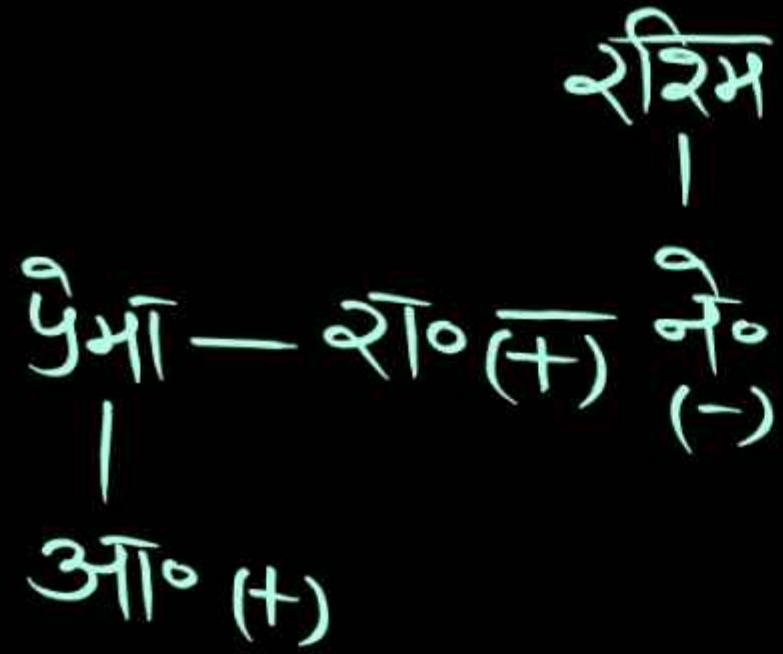 रश्मि
प्रेमा — रा० (+) — ने०
(-)
आ० (+)